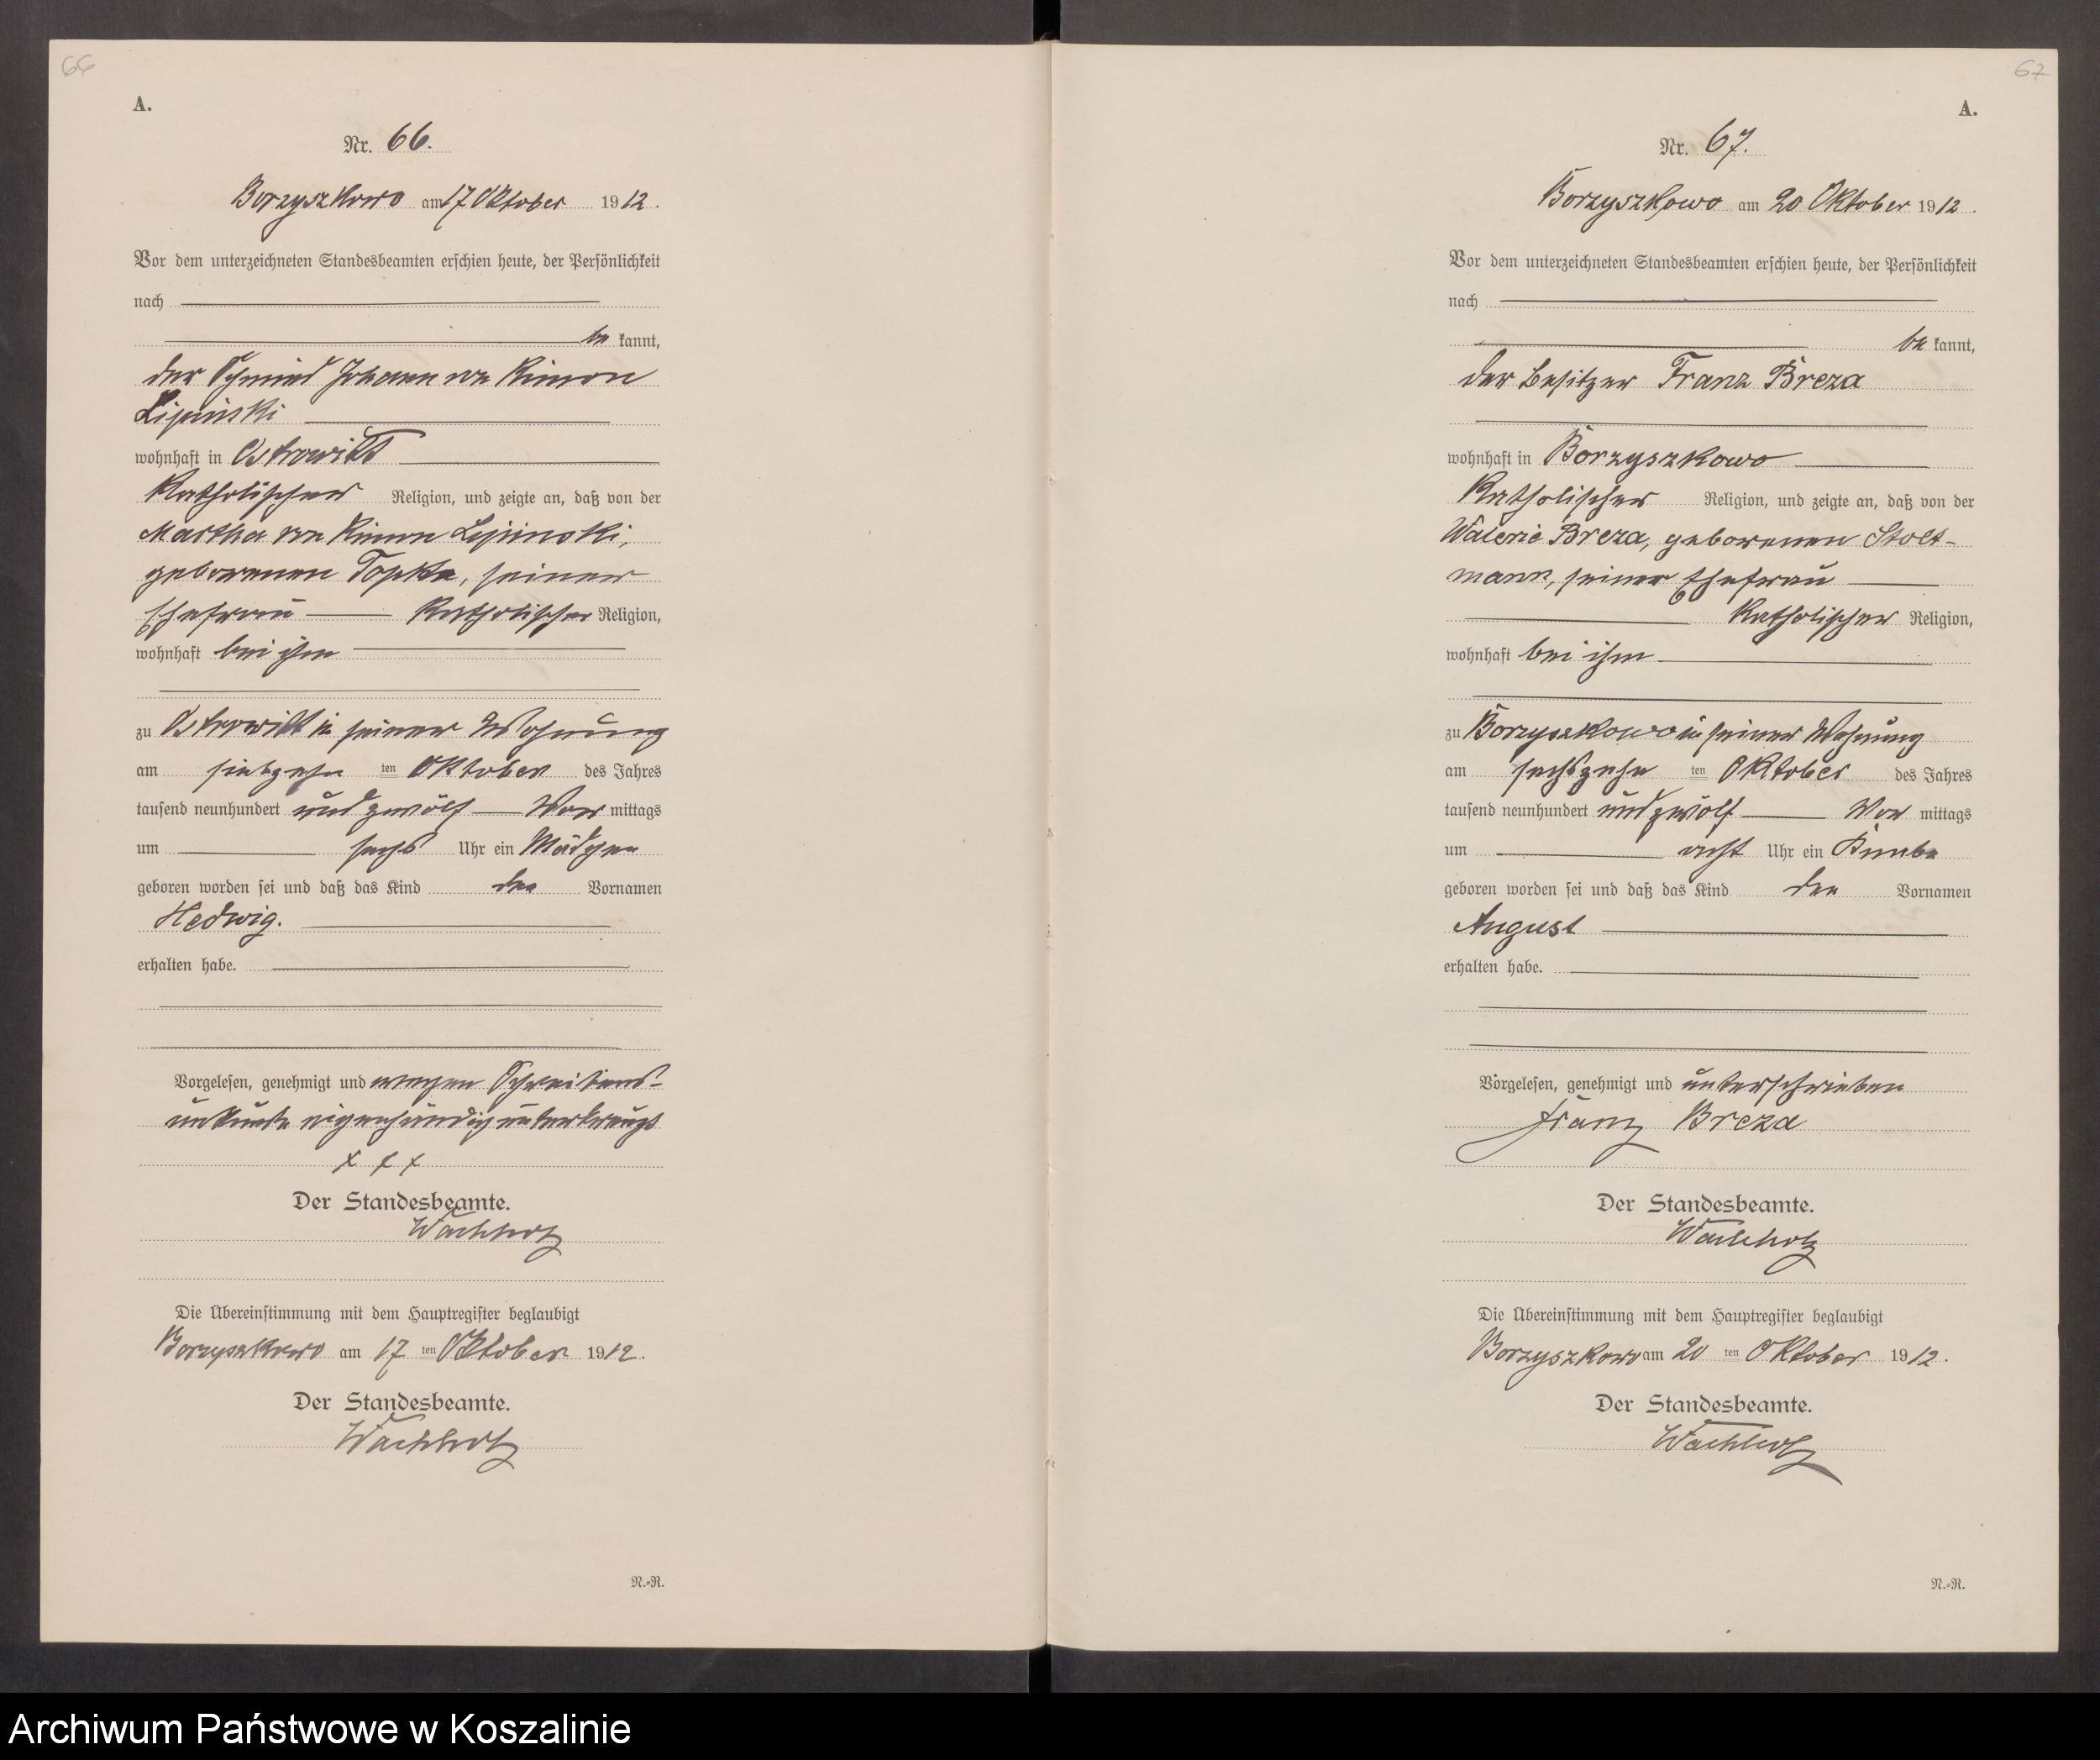 66
A.
Nr. 66.
Borzyszkowo am 17 Oktober 1912.
Vor dem unterzeichneten Standesbeamten erschien heute, der Persönlichkeit
nach
be kannt,
der Schmied Johann von Kimon
Lipinski
wohnhaft in Ostrowitt
Katholischer Religion, und zeigte an, daß von der
Martha von Kimon Lipinski,
geborenen Topka, seiner
Ehefrau Katholischer Religion,
wohnhaft bei ihm
zu Ostrowitt in seiner Wohnung
am siebzehn ten Oktober des Jahres
tausend neunhundert und zwölf Vor mittags
um sechs Uhr ein Mädchen
geboren worden sei und daß das Kind den Vornamen
Hedwig.
erhalten habe.
Vorgelesen, genehmigt und wegen Schreibens-
unkunde eigenhändig unterkreuzt
x x x
Der Standesbeamte.
Wachholz
Die Übereinstimmung mit dem Hauptregister beglaubigt
Borzyszkowo am 17 ten Oktober 1912.
Der Standesbeamte.
Wachholz
N.-R.
67
A.
Nr. 67.
Borzyszkowo am 20 Oktober 1912.
Vor dem unterzeichneten Standesbeamten erschien heute, der Persönlichkeit
nach
be kannt,
der Besitzer Franz Breza
wohnhaft in Borzyszkowo
Katholischer Religion, und zeigte an, daß von der
Walerie Breza, geborenen Stolt-
mann, seiner Ehefrau
Katholischer Religion,
wohnhaft bei ihm
zu Borzyszkowo in seiner Wohnung
am sechszehn ten Oktober des Jahres
tausend neunhundert und zwölf Vor mittags
um acht Uhr ein Knabe
geboren worden sei und daß das Kind den Vornamen
August
erhalten habe.
Vorgelesen, genehmigt und unterschrieben
Franz Breza
Der Standesbeamte.
Wachholz
Die Übereinstimmung mit dem Hauptregister beglaubigt
Borzyszkowo am 20 ten Oktober 1912.
Der Standesbeamte.
Wachholz
N.-R.
Archiwum Państwowe w Koszalinie